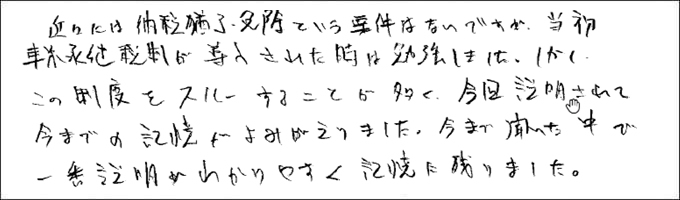 近々には納税猶予・免除という案件はないですが、当初
事業承継税制が導入された時は勉強しました。しかし
この制度をスルーすることが多く、今回説明されて
今までの記憶がよみがえりました。今まで聞いた中で
一番説明がわかりやすく記憶に残りました。